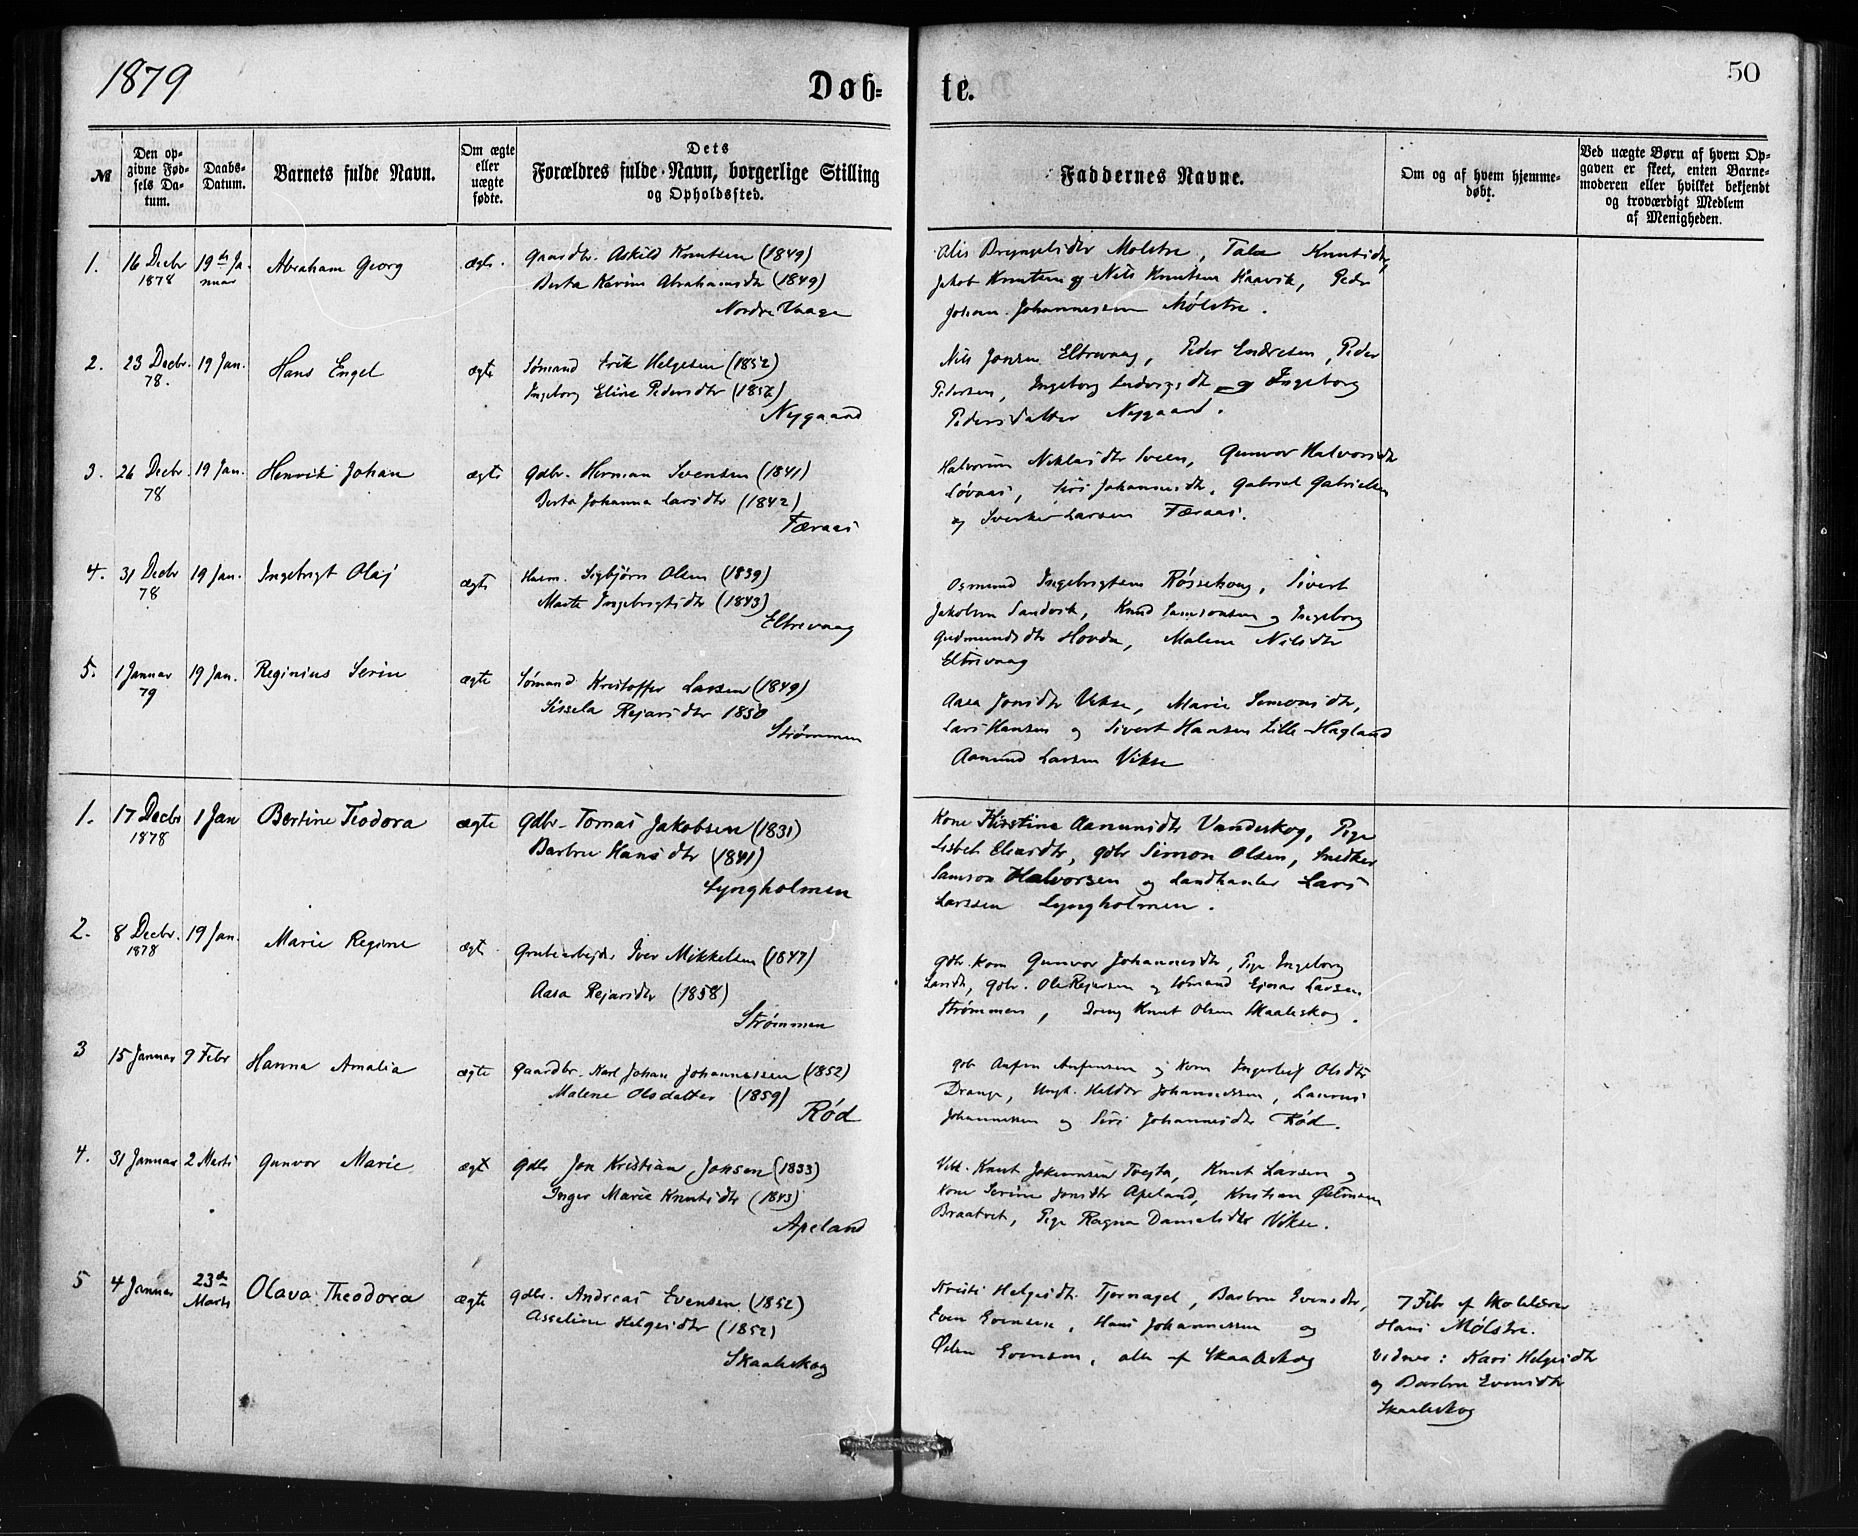 1879
Døb-
te.
50
№
Den op-
givne Fød-
sels Da-
tum.
Daabs-
Datum.
Barnets fulde Navn.
Om ægte
eller
uægte
fødte.
Dets
Forældres fulde Navn, borgerlige Stilling
og Opholdssted.
Faddernes Navne.
Om og af hvem hjemme-
døbt.
Ved uægte Børn af hvem Op-
gaven er skeet, enten Barne-
moderen eller hvilket bekjendt
og troværdigt Medlem
af Menigheden.
1. 16 Decbr 1878
19de Ja-
nuar
Abraham Georg
ægte.
Gaardbr. Askild Knutsen (1849)
Berta Karine Abrahamsdtr (1849)
Nordre Vaage
Brynjelsdtr Molstre, Knutsdtr,
Jakob Knutsen og Nils Knutsen Haavik, Peder
Johan Johannessen Mølstre.
2. 23 Decbr. 78.
19 Jan.
Hans Engel
ægte
Sømand Erik Helgesen (1852)
Ingeborg Eline Pedersdtr (1852)
Nygaard
Nils Jonsen Eltrevaag, Peder Endresen, Peder
Pedersen, Ingeborg Ludvigsdtr og Ingeborg
Pedersdatter Nygaard.
3. 26 Decbr. 78
19 Jan.
Henrik Johan
ægte
Gdbr. Herman Svensen (1841)
Berta Johanna Larsdtr (1842)
Færaas
Halvorine Niklasdtr Sveen, Gunvor Halvorsdtr
Løvaas, Siri Johannesdtr, Gabriel Gabrielsen
og Sverker Larsen Færaas.
4. 31 Decbr 78
19 Jan.
Ingebrigt Olaj
ægte
Husm. Sigbjørn Olsen (1839)
Marte Ingebrigtsdtr (1843)
Eltrevaag
Osmund Ingebrigtsen Røssehaug, Sivert
Jakobsen Sandvik, Knud Samsonsen og Ingeborg
Gudmundsdtr Hovda, Malene Nilsdtr
Eltrevaag
5. 1 Januar 79
19 Jan.
Reginius Serin
ægte
Sømand Kristoffer Larsen (1849)
Sissela Rejarsdtr 1850
Strømmen
Aasa Jonsdtr Vikse, Marie Simonsdtr,
Lars Hansen og Sivert Hansen Lille-Hagland
Aamund Larsen Vikse
1. 17 Decbr 1878
1 Jan
Bertine Teodora
ægte
Gdbr. Tomas Jakobsen (1831)
Barbru Hansdtr (1841)
Lyngholmen
Kone Kirstina Aamunsdtr Vandeskog, Pige
Lisbet Eliasdtr, gdbr Simon Olsen, Snedker
Samson Halvorsen og Landhanler Lars
Larssen Lyngholmen.
2. 8 Decbr. 1878
19 Jan.
Marie Regine
ægt
Grubearbejdr Iver Mikkelsen (1847)
Aasa Rejarsdtr (1858)
Strømmen
gdbr Kone Gunvor Johannesdtr, Pige Ingeborg
Larsdtr, gdbr. Ole Rejersen og Sømand Ejnar Larsen
Strømmen, Dreng Knut Olsen Skaaleskog.
3 15 Januar
9 Febr
Hanna Amalia
ægte
Gaardbr. Karl Johan Johannessen (1852)
Malene Olsdatter (1859)
Rød
gdb Anfin Anfinsen og Kone Ingerleif Olsdtr
Drange, Ungk. Heldor Johannessen, Laurus
Johannessen og Siri Johannesdtr Rød.
4. 31 Januar
2 Marts
Gunvor Marie
ægt
Gdbr Jon Kristian Jonsen (1833)
Inger Marie Knutsdtr (1843)
Apeland
Knut Johannsen Tvejta, Knut Larsen og
Kone Serine Jonsdtr Apeland, Kristian Østensen
Braatvet, Pige Ragna Danielsdtr Vikse.
5 4 Januar
23de
Marts
Olava Theodora
ægte
gdbr. Andreas Evensen (1852)
Asseline Helgesdtr (1852)
Skaaleskog
Kristi Helgesdtr Tjernagel, Barbru Evensdtr,
Even Evensen, Hans Johannessen og
Østen Evensen, alle af Skaaleskog
7 Febr af Skolelærer
Hans Mølstre.
Vidner: Kari Helgesdtr
og Barbru Evensdtr
Skaaleskog